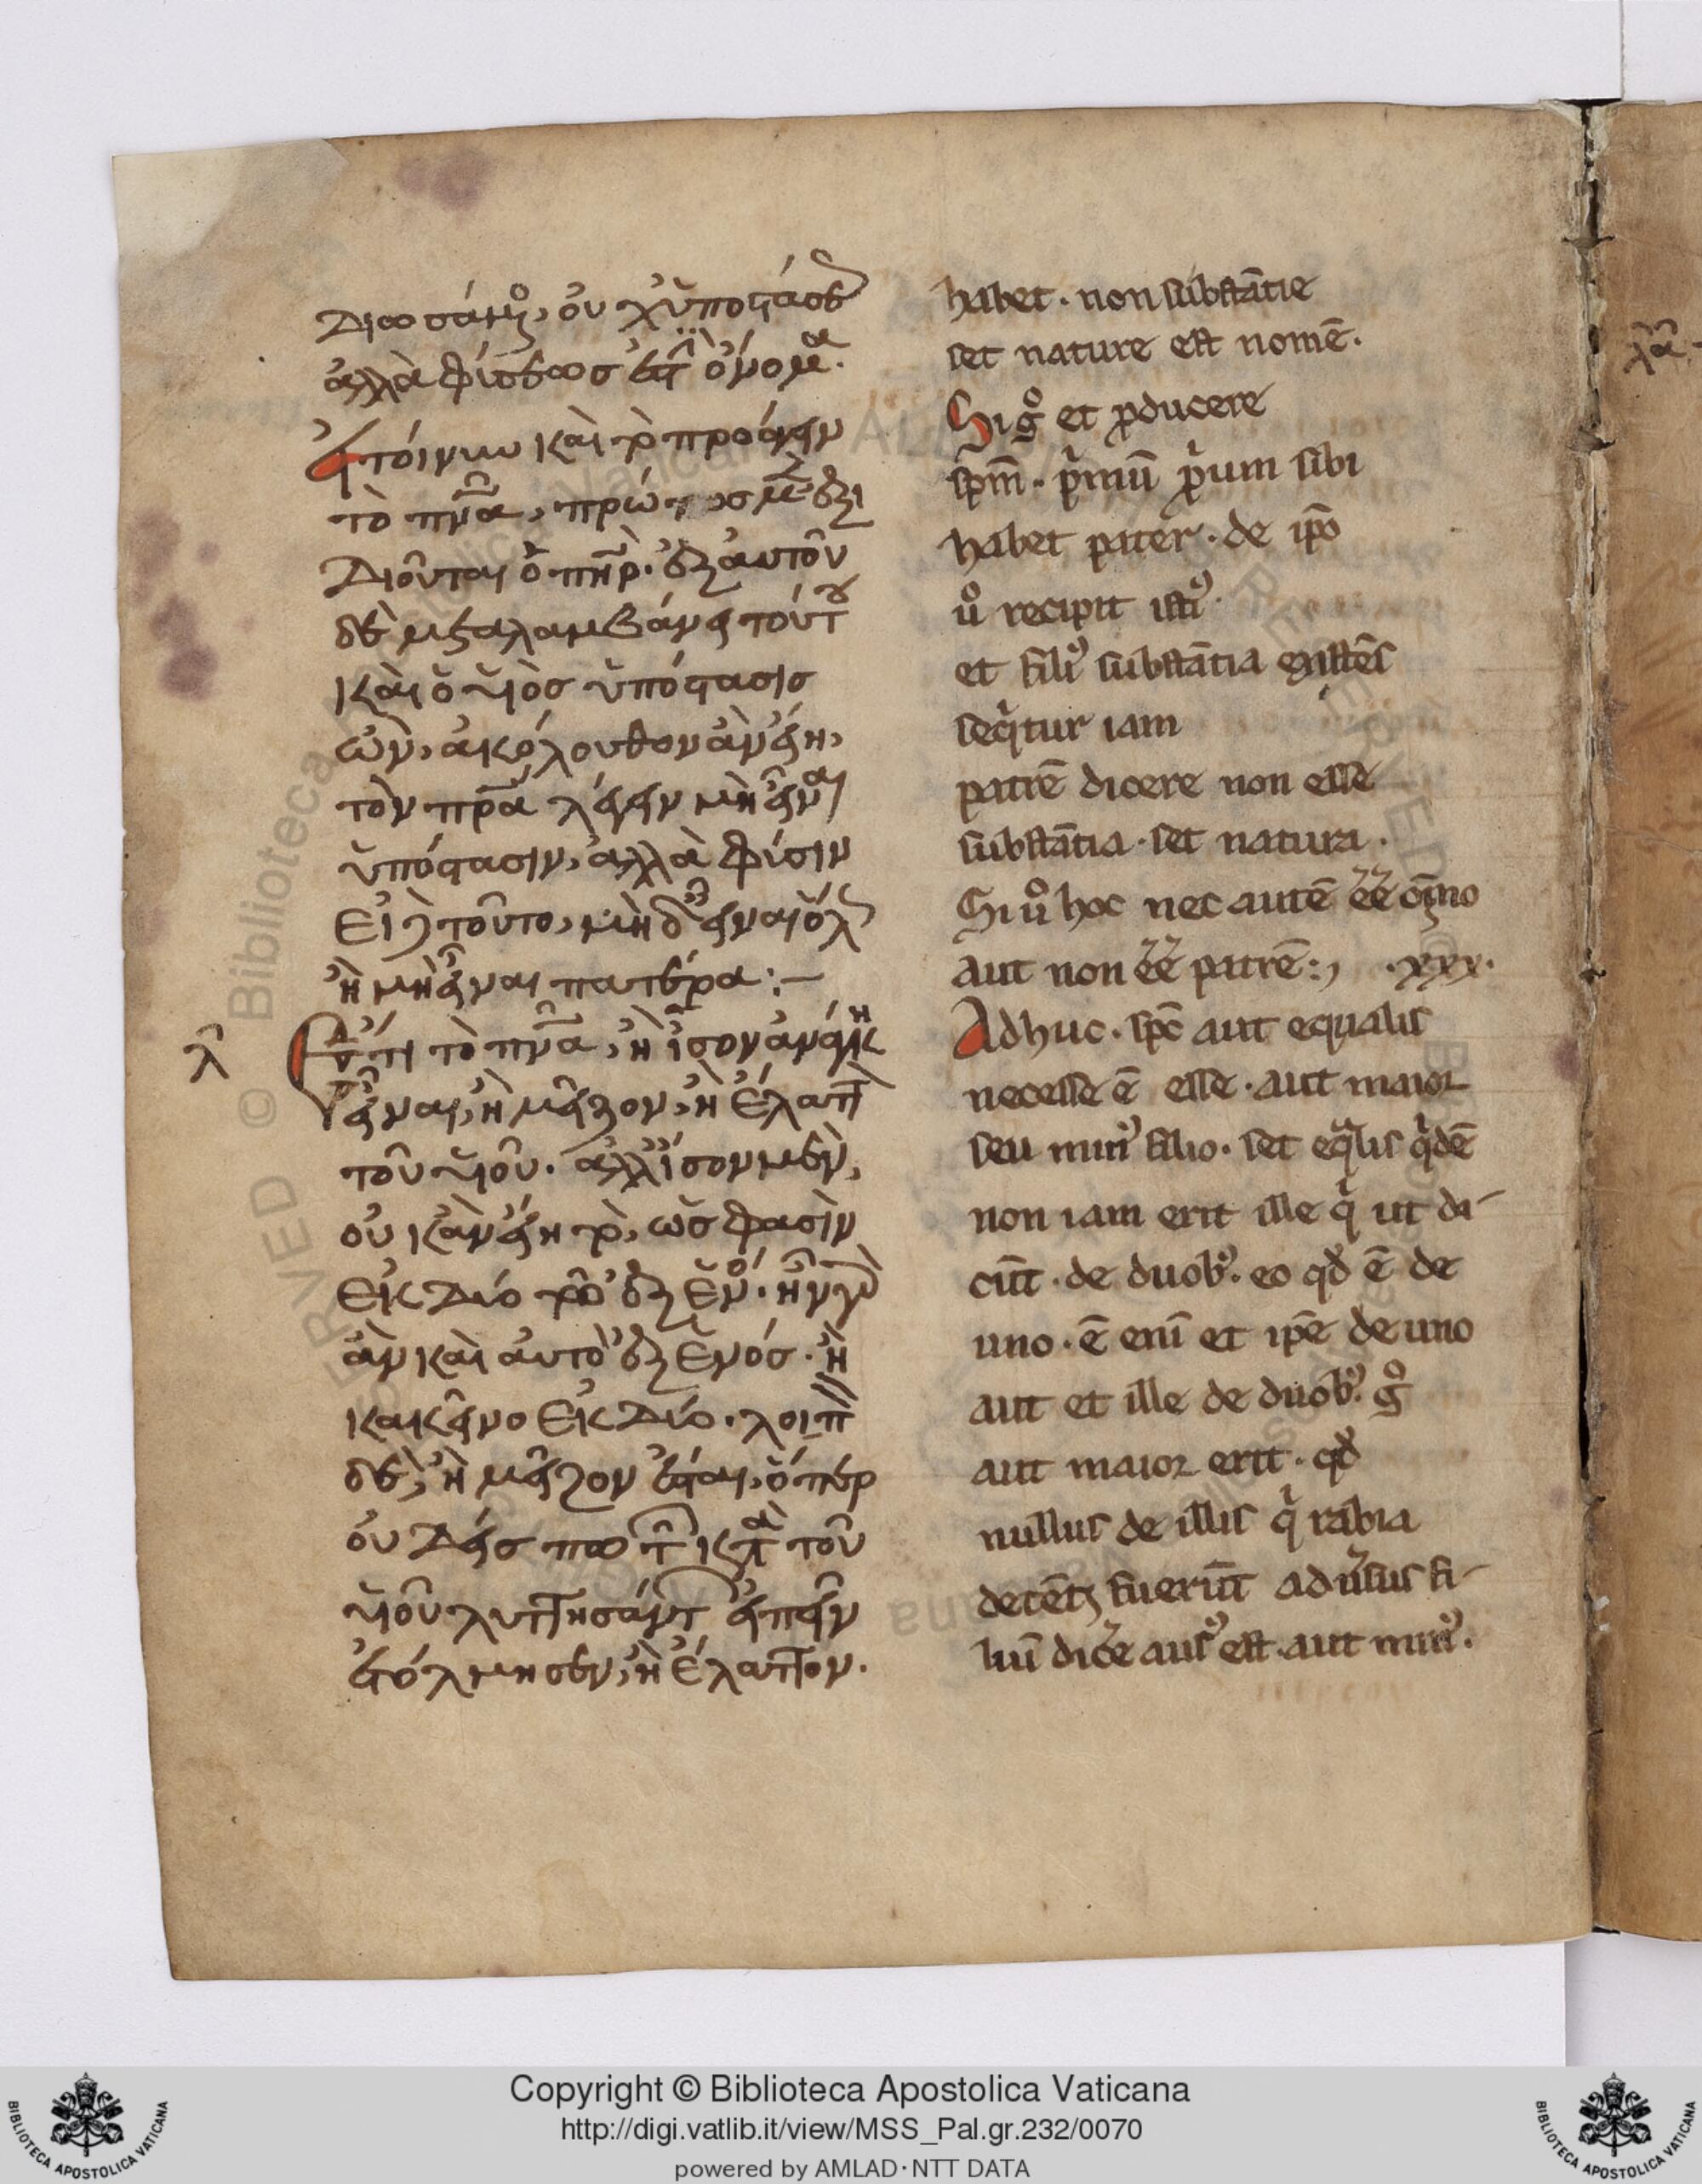 διωσάμην, οὐχ ὑποστάσε
ἀλλὰ φύσεως ἐστὶν ὄνομα.
Εἰ τοίνυν καὶ τὸ προάγειν
τὸ πνα, πρώτως μὲν ἐξι
διοῦται ὁ πηρ. ἐξ αὐτοῦ
δὲ μεταλαμβάνει τούτου
καὶ ὁ υἱὸς ὑπόστασις
ὢν, ἀκόλουθον ἂν εἴη,
τὸν πρα λέγειν μὴ εἶναι
ὑπόστασιν, ἀλλὰ φύσιν
Εἰ δὲ τοῦτο, μηδ εἶναι ὅλως
ἢ μὴ εἶναι πατέρα:-
λ Ἔτι τὸ πνα, ἢ ἴσον ἀνάγκη
εἶναι, ἢ μεῖζον, ἢ ἔλαττον
τοῦ υἱοῦ. ἀλλ ἴσον μὲν,
οὐκ ἂν εἴη τὸ, ὥς φασιν
ἐκ δύο τῶ ἐξ ἑνός. ἦν γὰρ
ἂν καὶ αὐτὸ ἐξ ἑνός. ἢ
κακεῖνο ἐκ δύο. λοιπὸν
δὲ, ἢ μεῖζον ἔσται, ὅπερ
οὐδείς πω τῶν κατὰ τοῦ
υἱοῦ λυττησάντων εἰπεῖν
ἐτόλμησεν, ἢ ἔλαττον.
habet. non substātie
set nature est nomē.
Si gͦ et producere
spm̄. pͥmū pͥum sibi
habet pater. de ip̄o
uͦ recipit isti᾽
et fili᾽ substātia existēs
seqͥtur iam
patrē dicere non esse
substātia. set natura.
Si uͦ hoc nec autē ēē om̄no
aut non ēē patrē:, .xxx.
Adhuc. spc̄ aut equalis
necesse ē esse. aut maior
seu min᾽ filio. set eqͣlis qͥdē
non iam erit ille qͥ ut di-
cūt. de duob᾽. eo qd̄ ē de
uno. ē enī et ip̄e de uno
aut et ille de duob᾽. gͦ
aut maior erit. qd̄
nullus de illis qͥ rabia
detētꝫ fuerūt adu᾽sus fi-
liū dic᾽e aus᾽ est. aut min᾽.
λα
Copyright © Biblioteca Apostolica Vaticana
http://digi.vatlib.it/view/MSS_Pal.gr.232/0070
powered by AMLAD·NTT DATA
BIBLIOTECA APOSTOLICA VATICANA
BIBLIOTECA APOSTOLICA VATICANA